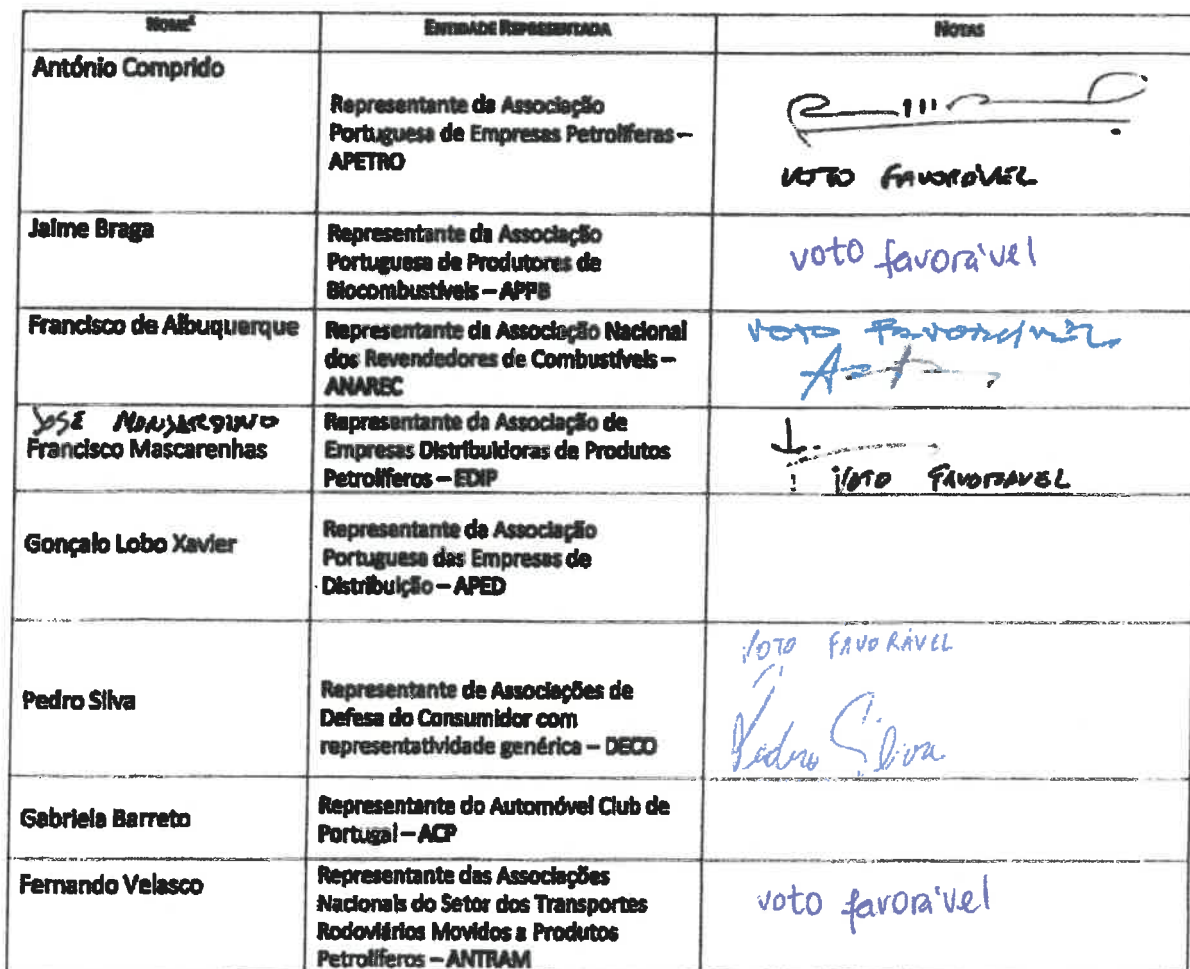 NOME²
ENTIDADE REPRESENTADA
NOTAS
António Comprido
Representante da Associação
Portuguesa de Empresas Petrolíferas –
APETRO
VOTO FAVORÁVEL
Jaime Braga
Representante da Associação
Portuguesa de Produtores de
Biocombustíveis – APPB
voto favorável
Francisco de Albuquerque
Representante da Associação Nacional
dos Revendedores de Combustíveis –
ANAREC
VOTO FAVORÁVEL
JOSÉ
Francisco Mascarenhas
Representante da Associação de
Empresas Distribuidoras de Produtos
Petrolíferos – EDIP
VOTO FAVORAVEL
Gonçalo Lobo Xavier
Representante da Associação
Portuguesa das Empresas de
Distribuição – APED
Pedro Silva
Representante de Associações de
Defesa do Consumidor com
representatividade genérica – DECO
VOTO FAVORÁVEL
Pedro Silva
Gabriela Barreto
Representante do Automóvel Club de
Portugal – ACP
Fernando Velasco
Representante das Associações
Nacionais do Setor dos Transportes
Rodoviários Movidos a Produtos
Petrolíferos – ANTRAM
voto favorável